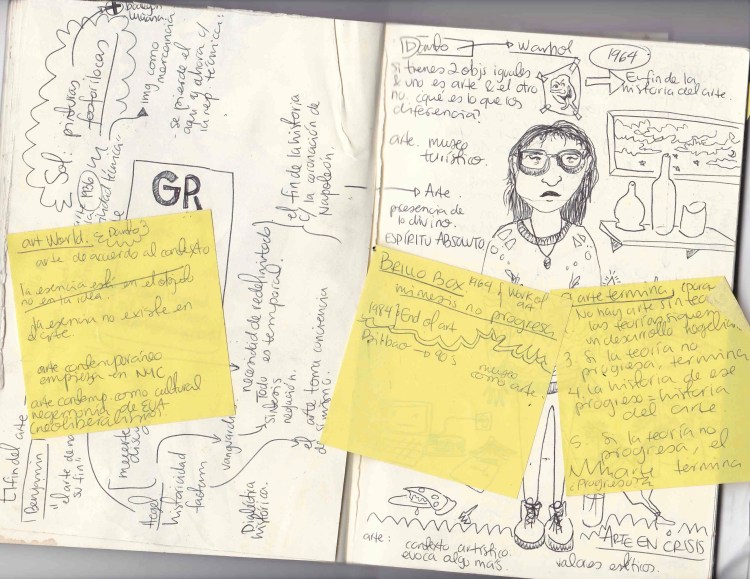 Sol: pinturas
fosforilocas
img como
mercancía
- se pierde el
aquí y ahora c/
la rep. técnica.
GR
el fin de la historia
c/ la coronación de
Napoleón.
necesidad de redefinirlo
Todo es temporal
síntesis
el arte toma conciencia
de sí mismo.
vanguardia
Hegel
historicidad
factum
Dialéctica
histórica.
El fin del arte
Benjamin
"el arte de no
su fin"
art World. { Danto }
arte de acuerdo al contexto
la esencia está en el objeto
no en la idea.
la esencia no existe en
el arte
arte contemporáneo
empieza en NYC
arte contemp. como cultural
hegemonía de EUA
(neoliberalismo)
Danto → Warhol
1964
si tienes 2 objs iguales
& uno es arte & el otro
no ¿qué es lo que los
diferencia?
El fin de la
historia del arte.
arte. museo
turístico.
→ Arte
presencia de
lo divino.
ESPÍRITU ABSOLUTO
BRILLO BOX 1964 { Work of
art
mimesis no progresa
1984 } End of art
Bilbao → 90s
museo
como arte.
2. arte termina (para
No hay arte sin teo
las teorías siguen
un desarrollo hegeliano
3. Si la teoría no
progresa, termina
4. la historia de ese
progreso = historia
del arte
5. Si la teoría no
progresa, el
arte termina
¿Progreso?
ARTE EN CRISIS
arte: contexto artístico.
evoca algo más.
valores estéticos.